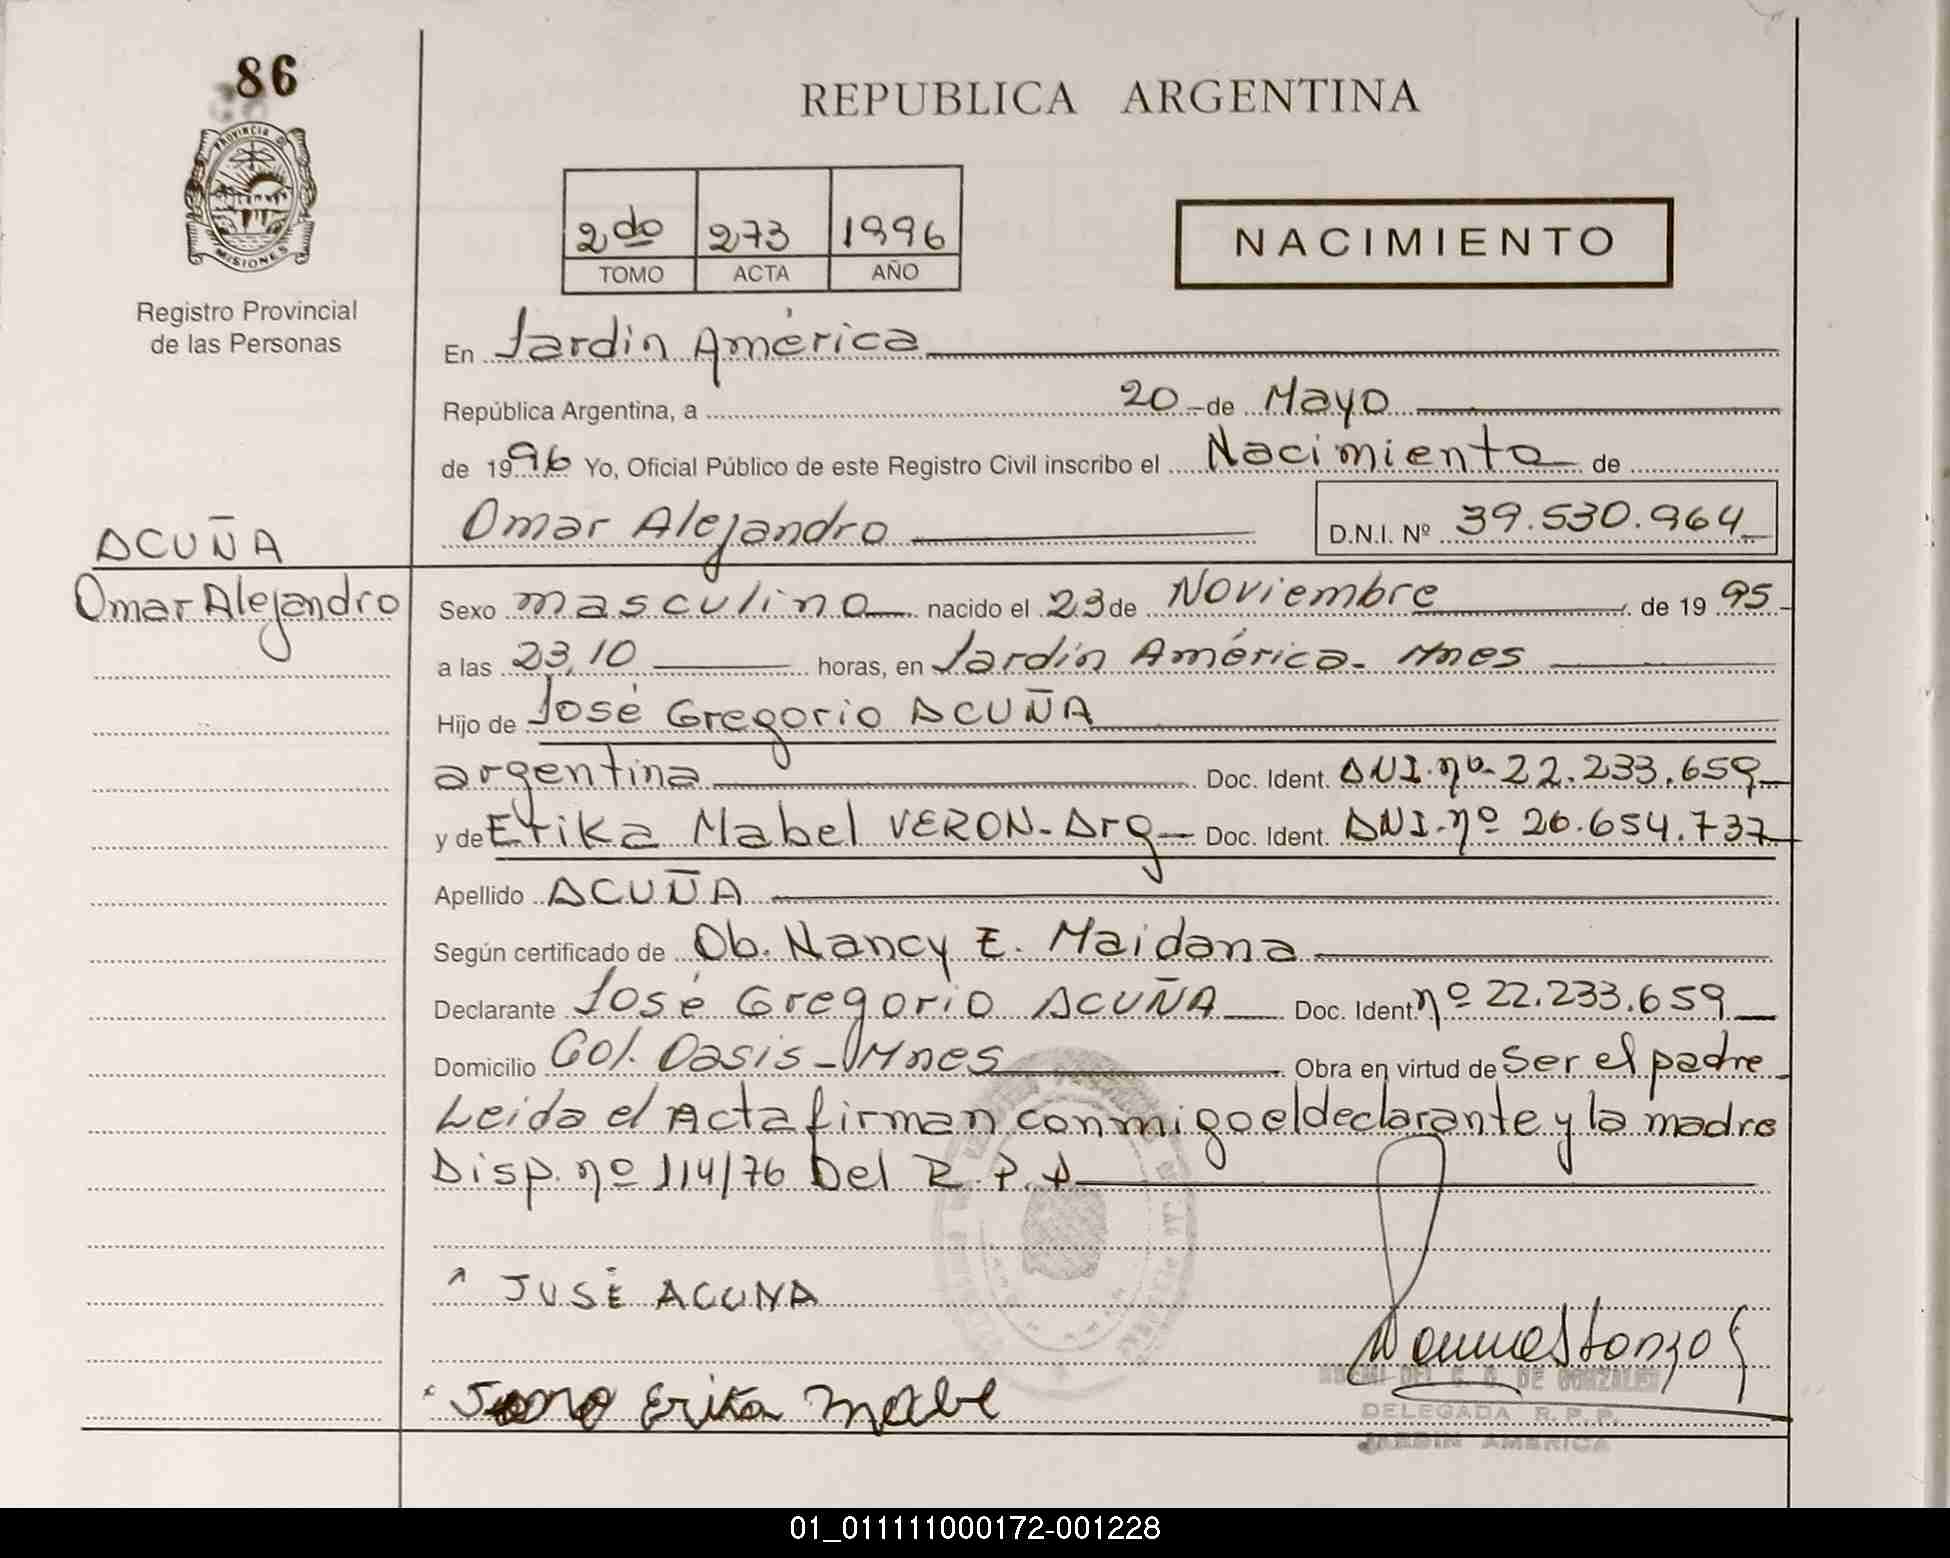 86
PROVINCIA DE
MISIONES
Registro Provincial
de las Personas
REPUBLICA ARGENTINA
2do 273 1996
TOMO ACTA AÑO
NACIMIENTO
En Jardin América
República Argentina, a 20 de Mayo
de 1996 Yo, Oficial Público de este Registro Civil inscribo el Nacimiento de
Omar Alejandro D.N.I. Nº 39.530.964
ACUÑA
Omar Alejandro
Sexo masculino nacido el 23 de Noviembre de 1995
a las 23,10 horas, en Jardin América. Mnes
Hijo de José Gregorio ACUÑA
argentina Doc. Ident. DNI. nº 22.233.659
y de Erika Mabel VERON. Arg Doc. Ident. DNI. nº 20.654.737
Apellido ACUÑA
Según certificado de Ob. Nancy E. Maidana
Declarante José Gregorio ACUÑA Doc. Ident. nº 22.233.659
Domicilio Col. Oasis - Mnes Obra en virtud de Ser el padre
Leida el Acta firman conmigo el declarante y la madre
Disp. nº 114/76 Del R. P. P.
JOSÉ ACUNA
Erika Mabel
DE GONZALEZ
DELEGADA R.P.P.
JARDIN AMERICA
01_011111000172-001228